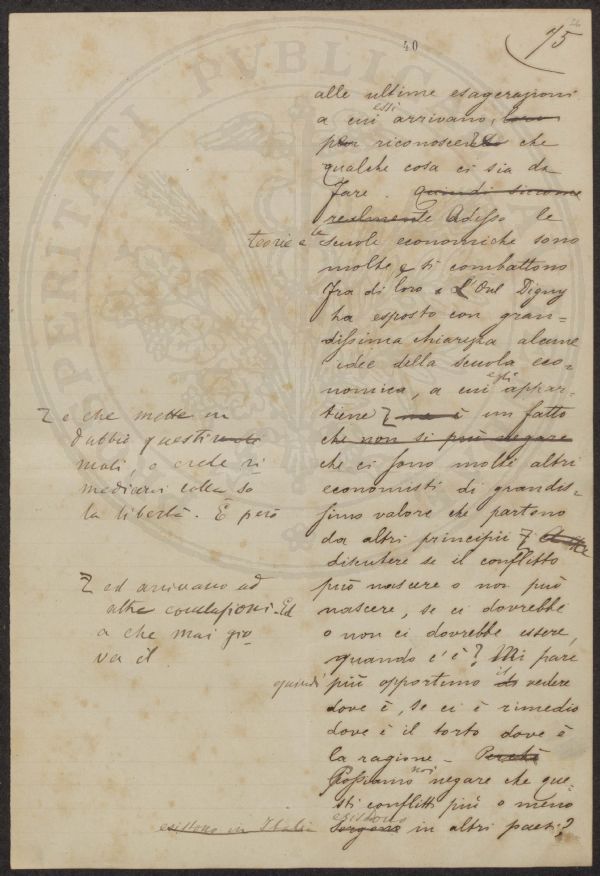 40
75
alle ultime esagerazioni
a cui essi arrivano, loro
riconoscere che
qualche cosa ci sia da
fare. Quindi siccome
realmente Adesso le
teorie e le scuole economiche sono
molte e si combattono
fra di loro e L'On Digny
ha esposto con gran=
dissima chiarezza alcune
idee della scuola eco=
nomica, a cui egli appar=
tiene ma è un fatto
e che mette in
dubbio questi
mali, o crede ri
mediarvi colla so
la libertà. È però
che non si può negare
che ci sono molti altri
economisti di grandis=
simo valore che partono
da altri principii
ed arrivano ad
altre conclusioni. Ed
a che mai gio=
va il
discutere se il conflitto
può nascere o non può
nascere, se ci dovrebbe
o non ci dovrebbe essere,
quando c'è? Mi pare
quindi più opportuno il vedere
dove è, se ci è rimedio
dove è il torto dove è
la ragione - Perchè
Possiamo noi negare che que=
sti conflitti più o meno
esistono in Italia esistono Sorgono in altri paesi?
PROSPERITATI PUBLICAE